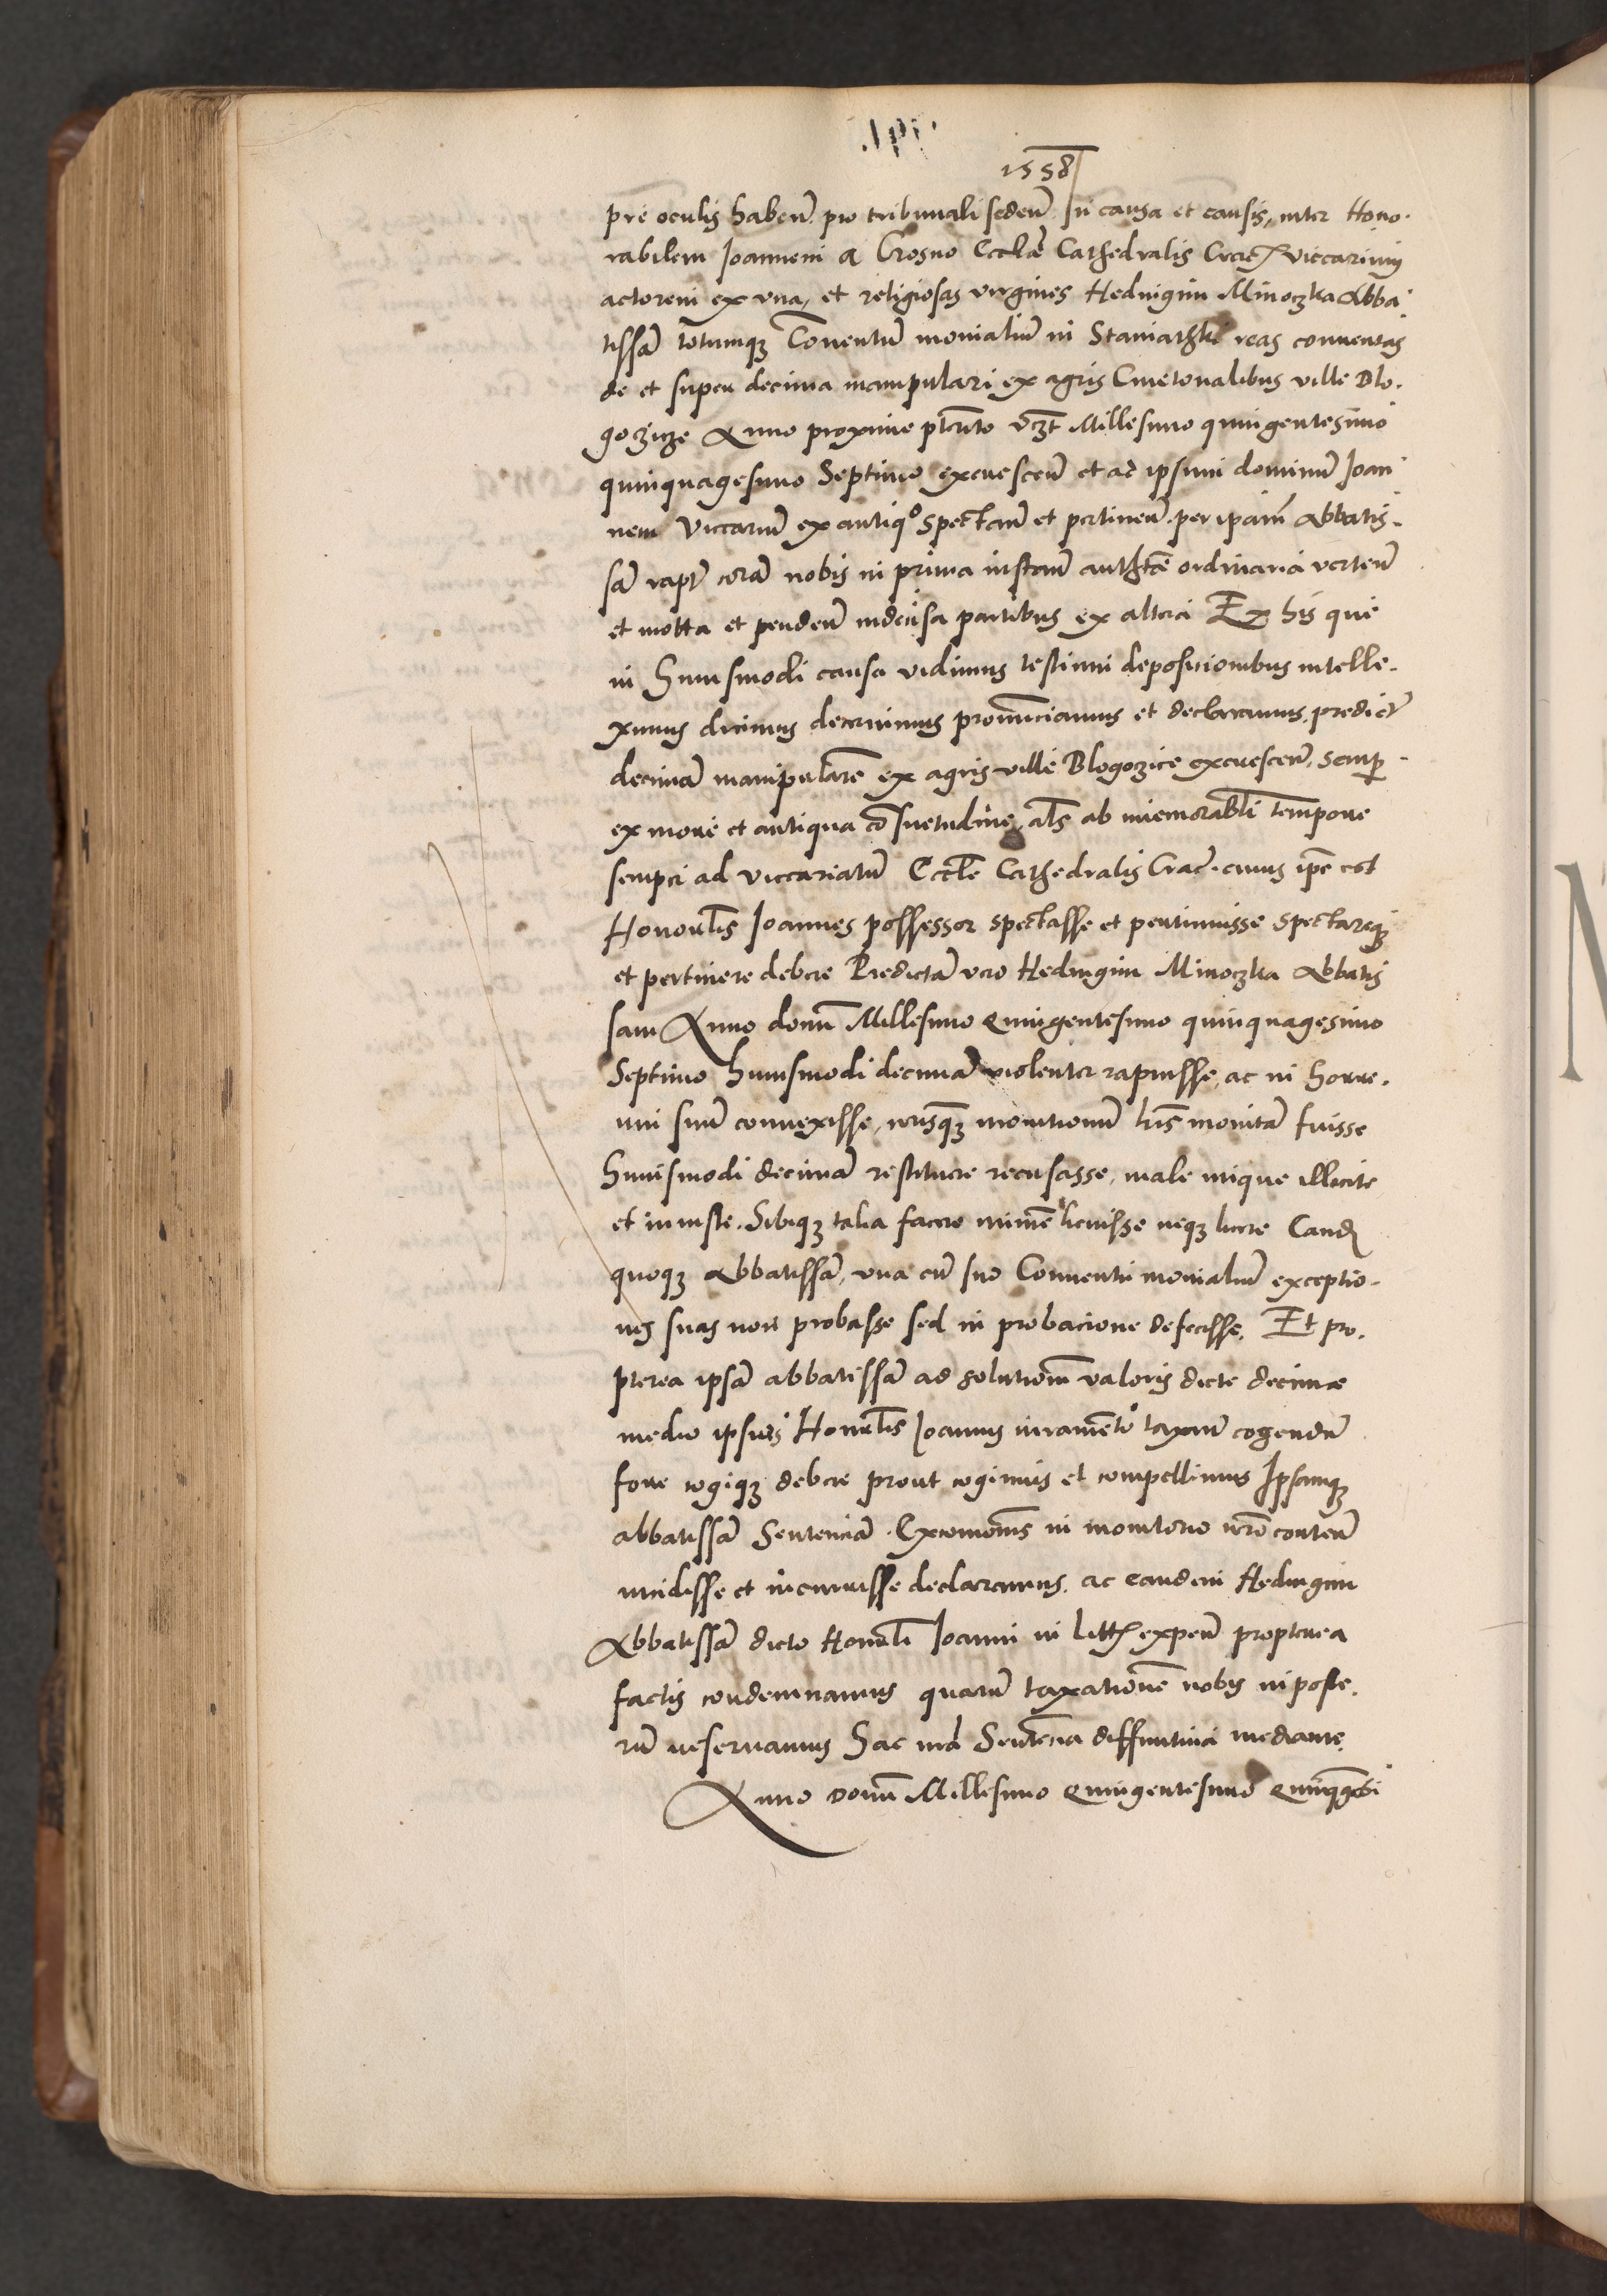 1558
pre oculis haben̄. pro tribunali seden̄. In causa et causis, inter Hono-
rabilem Joannem a Crosno Eccl̄æ Cathedralis Crac̄. viccarium
actorem ex una, et religiosas virgines Heduigim Minoczka Abba-
tissā totumq₃ Conventū monialiū in Staniathki reas conventas
de et super decima manipulari ex agris Cmetonalibus ville Blo-
gozicze Anno proxime pt̄erito vcz̄t Millesimo quingentesimo
quinquagesimo Septimo excrescen̄ et ad ipsum dominū Joan-
nem Viccariū ex antiqͦ spectan̄ et pertinen̄. per ipsam̄ Abbatis-
sā rapt̄ corā nobis in prima instan̄ auth̄te ordinaria verten̄
et motta et penden̄ indecisa partibus ex altera Ex his que
in Huiusmodi causa vidimus testium depositionibus intelle-
ximus dicimus decernimus pronunciamus et declaramus, predict̄
decimā manipularē ex agris ville Blogozice excrescen̄, semp̄
ex more et antiqua cōsuetudine, al̄s ab inmemorabl̄i tempore
semper ad viccariatū Eccl̄e Cathedralis Crac̄. cuius ip̄e est
Honorl̄is Joannes possessor spectasse et pertinuisse spectareq₃
et pertinere debere Predictā vero Heduigim Minoczka Abbatis
sam Anno domī Millesimo Quingentesimo quinquagesimo
Septimo huiusmodi decimā violenter rapuisse, ac in horre-
um suū convexisse, nr̄isq₃ monitionū lr̄is monitā fuisse
Huiusmodi decimā restituere recusasse, male inique illicite
et iniuste. Sibiq₃ talia facere minimē licuisse neq₃ licere Eand̄
quoq₃ Abbatissā, una cū suo Conventu monialiū exceptio-
nes suas non probasse sed in probacione defecisse. Et pro-
pterea ipsā abbatissā ad solutionē valoris dicte decimæ
medio ipsius Honorl̄is Joannis iuramēto taxan̄ cogendā
fore cogiq₃ debere prout cogimus et compellimus Ipsamq₃
abbatissā Sentenciā. Excom̄onis in monitorio nr̄o conten̄
incidisse et incurrisse declaramus, ac eandem Heduigim
Abbatissā dicto Honorl̄i Joanni in litt̄ expen̄ propterea
factis condemnamus quarū taxationē nobis in poste-
rū reservamus Hac nr̄a Sentēcia diffinitiva mediante.
Anno domī Millesimo Quingentesimo Quinq̄gesi